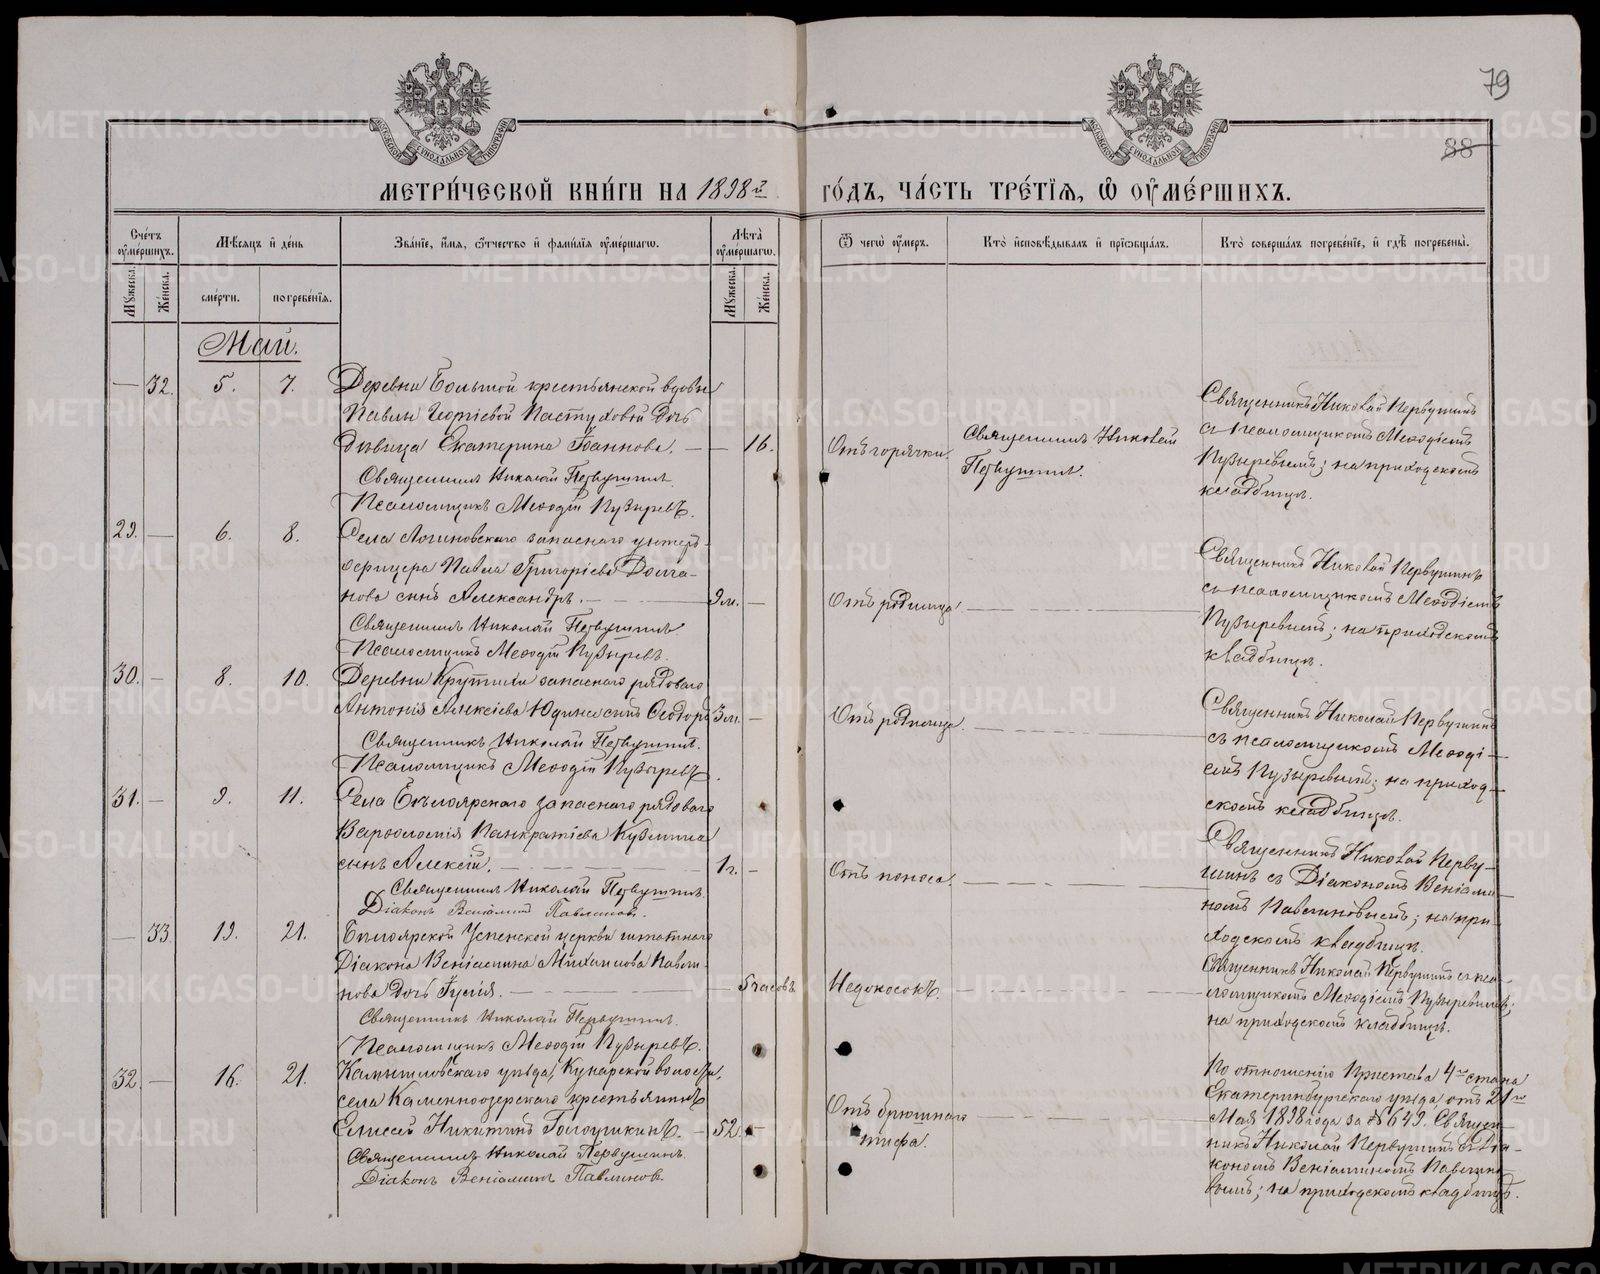 79
88
МОСКОВСКОЙ СУНОДАЛЬНОЙ ТИПОГРАФІИ
МОСКОВСКОЙ СУНОДАЛЬНОЙ ТИПОГРАФІИ
МЕТРИ́ЧЕСКОЙ КНИ́ГИ НА 1898й ГО́ДЪ, ЧА́СТЬ ТРЕ́ТІѦ, Ѡ ОУМЕ́РШИХЪ.
Сче́тъ оумершихъ.
Мѣсяцъ и день
Зва́ніе, и́мя, о́тчество и фами́лія оуме́ршагѡ.
Лѣта̀ оуме́ршагѡ.
Ѿ чегѡ̀ оу́меръ.
Кто̀ исповѣ́дывалъ и пріѡбща́лъ.
Кто̀ соверша́лъ погребе́ніе, и гдѣ̀ погребены̀.
Мужеска.
Женска.
сме́рти.
погребе́нія.
Мужеска.
Женска.
Май.
— 32. 5. 7. Деревни Большой крестьянской вдовы
Павлы Георгіевой Пастуховой дочь
дѣвица Екатерина Іоаннова. — — 16.
Священникъ Николай Первушинъ.
Псаломщикъ Меѳодій Пузыревъ.
Отъ горячки.
Священникъ Николай
Первушинъ.
Священникъ Николай Первушинъ
съ псаломщикомъ Меѳодіемъ
Пузыревымъ; на приходскомъ
кладбищѣ.
29. — 6. 8. Села Логиновскаго запаснаго унтеръ-
офицера Павла Григоріева Долга-
нова сынъ Александръ. — 9м. —
Священникъ Николай Первушинъ
Псаломщикъ Меѳодій Пузыревъ.
Отъ родимца.
Священникъ Николай Первушинъ
съ псаломщикомъ Меѳодіемъ
Пузыревымъ; на приходскомъ
кладбищѣ.
30. — 8. 10. Деревни Крутихи запаснаго рядоваго
Антонія Алексіева Юдина сынъ Ѳеодоръ 3м. —
Священникъ Николай Первушинъ.
Псаломщикъ Меѳодій Пузыревъ.
Отъ родимца.
Священникъ Николай Первушинъ
съ псаломщикомъ Меѳоді-
емъ Пузыревымъ; на приход-
скомъ кладбищѣ.
31. — 9. 11. Села Бѣлоярскаго запаснаго рядоваго
Варѳоломія Панкратіева Кузмина
сынъ Алексій. — 1г. —
Священникъ Николай Первушинъ.
Діаконъ Веніаминъ Павлиновъ.
Отъ поноса.
Священникъ Николай Перву-
шинъ съ Діакономъ Веніами-
номъ Павлиновымъ; на при-
ходскомъ кладбищѣ.
— 33. 19. 21. Бѣлоярской Успенской церкви штатнаго
Діакона Веніамина Михаилова Павли-
нова дочь Іулія. — — 5 часовъ
Священникъ Николай Первушинъ.
Псаломщикъ Меѳодій Пузыревъ.
Недоносокъ.
Священникъ Николай Первушинъ съ пса-
ломщикомъ Меѳодіемъ Пузыревымъ;
на приходскомъ кладбищѣ.
32. — 16. 21. Камышловскаго уѣзда, Кунарской волости,
села Каменноозерскаго крестьянинъ
Елисей Никитинъ Голоушкинъ. — 52. —
Священникъ Николай Первушинъ.
Діаконъ Веніаминъ Павлиновъ.
Отъ брюшнаго
тифа.
По отношенію Пристава 4го стана
Екатеринбургскаго уѣзда отъ 21го
Мая 1898 года за №649. Священ-
никъ Николай Первушинъ съ Діа-
кономъ Веніаминомъ Павлино-
вымъ; на приходскомъ кладбищѣ.